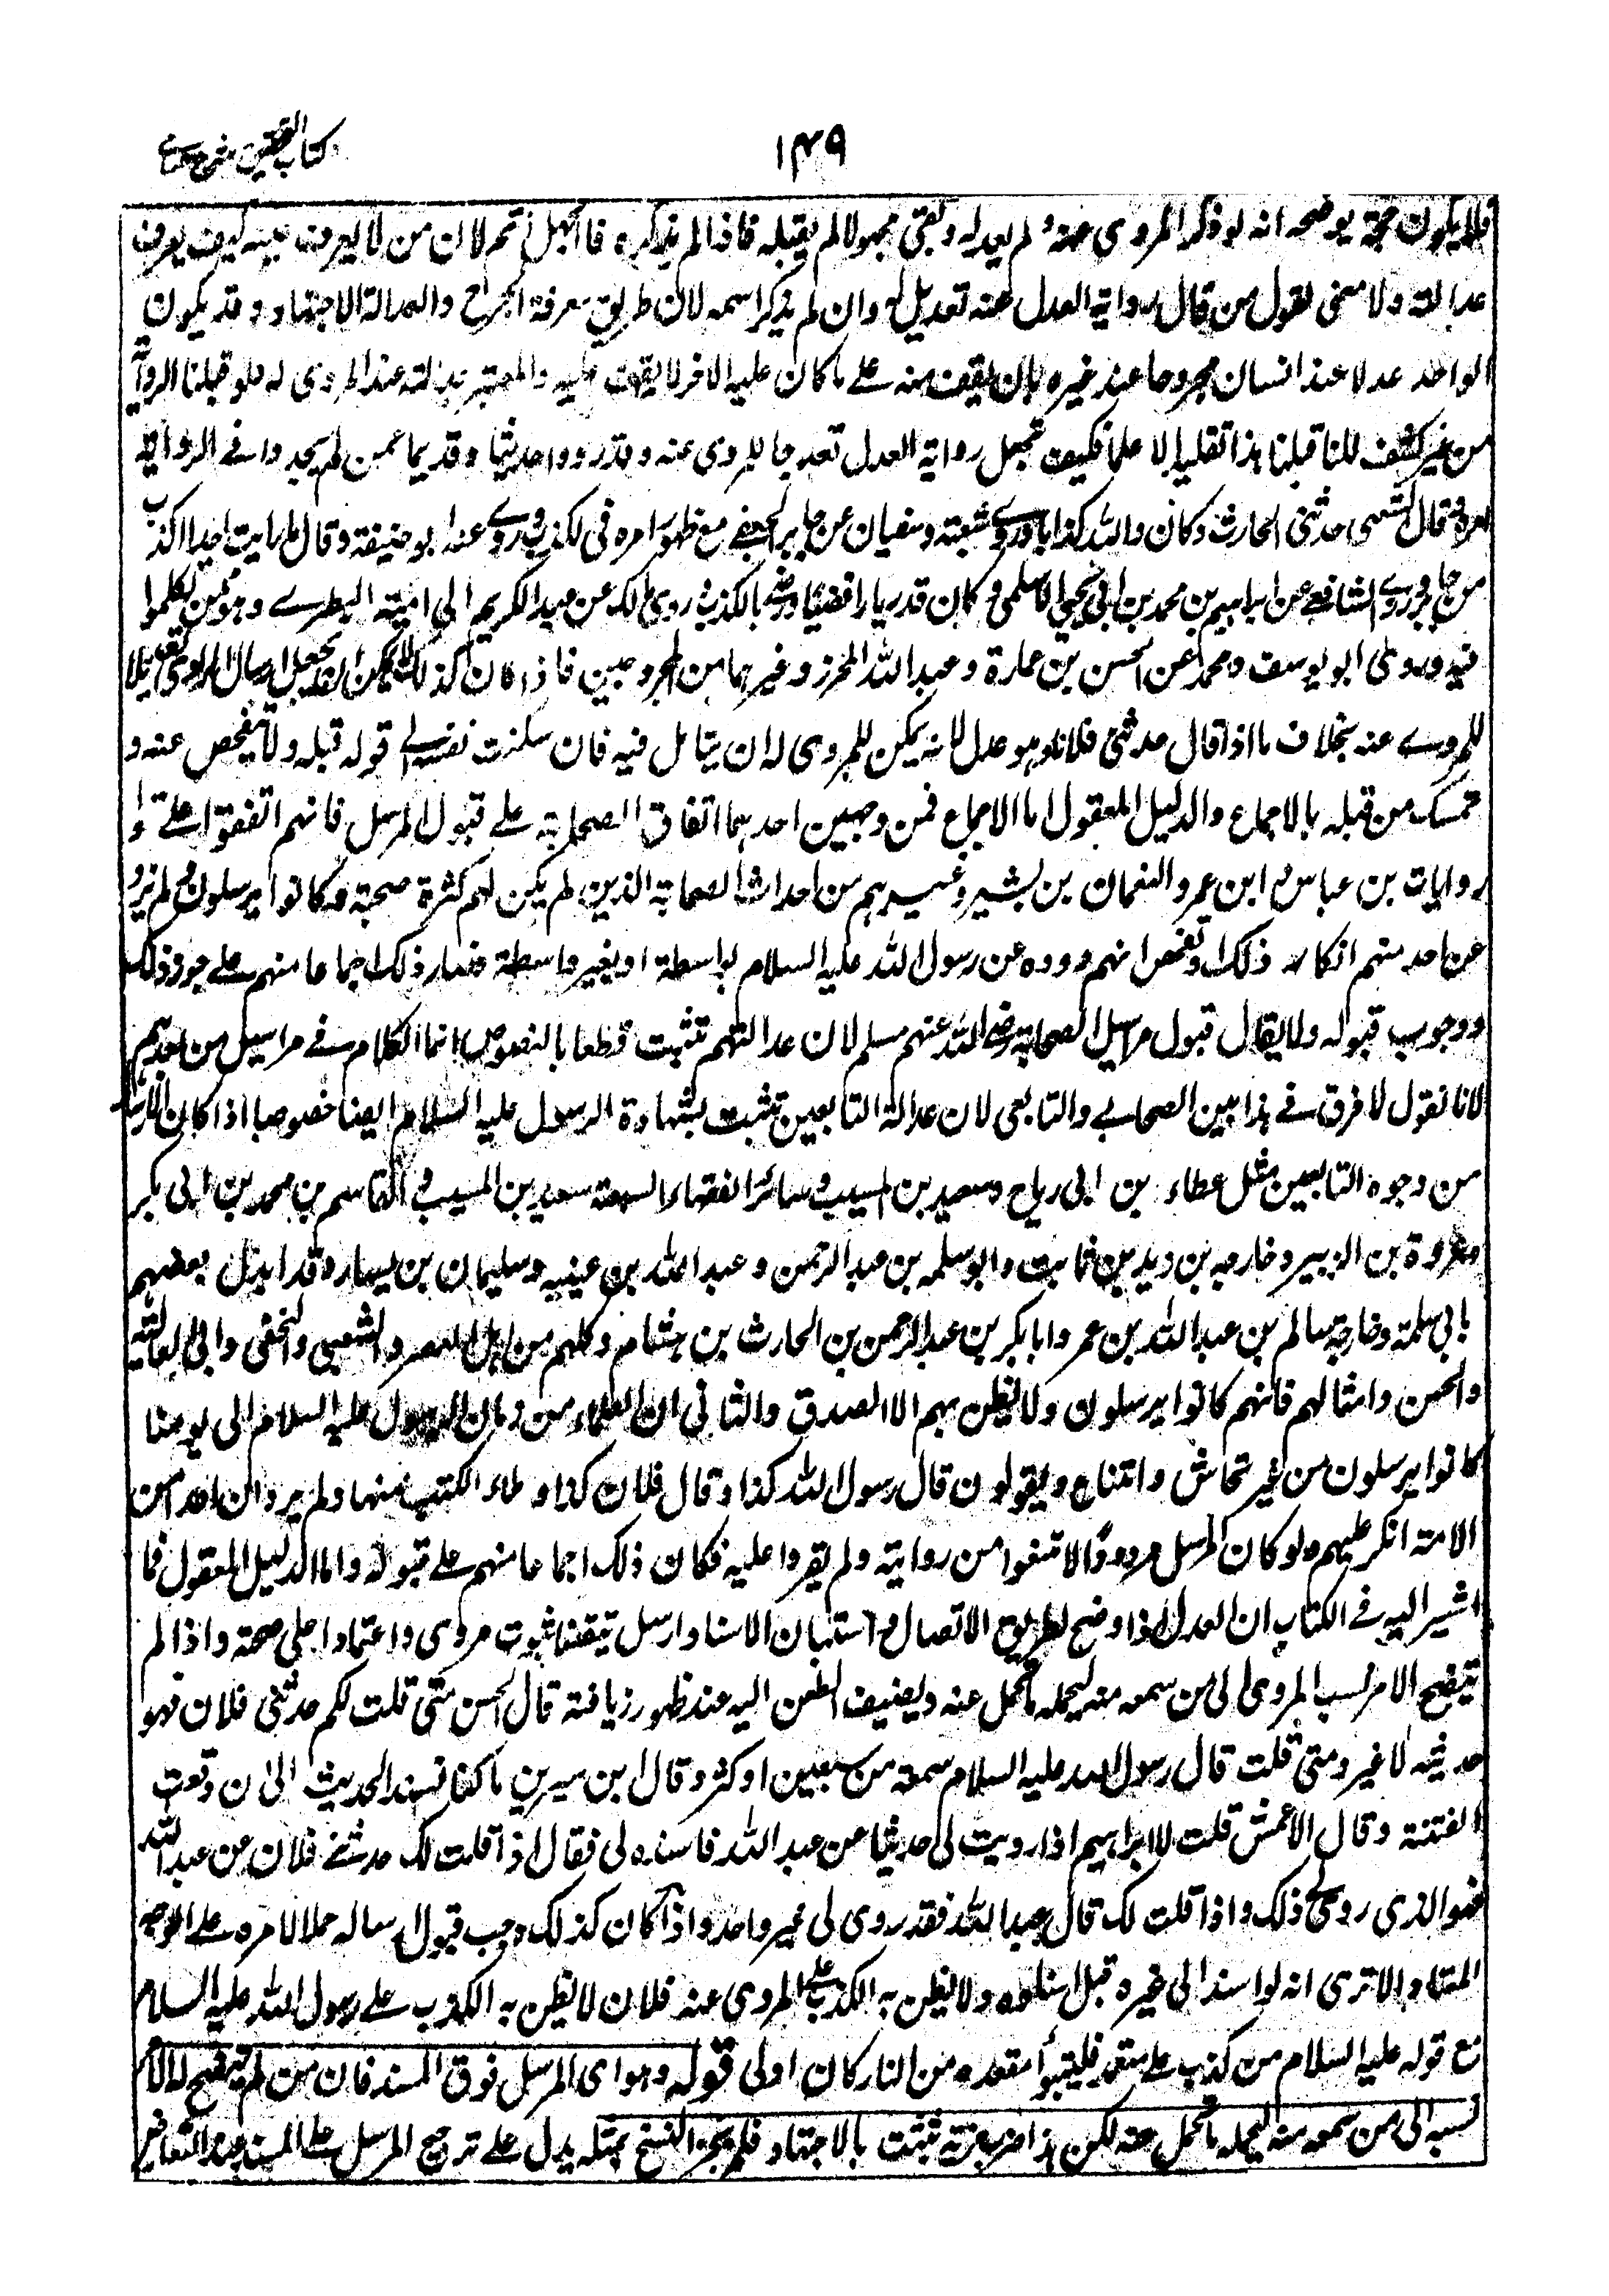 كتاب التحقيق شرح حسامى
١٤٩
فلا يكون حجة يوضحه انه لو ذكر المروى عنه ولم يعدله وبقى مجهولا لم يقبله فاذا لم يذكره فالجهل اتم لان من لا يعرف عينه كيف يعرف
عدالته ولا معنى لقول من قال رواية العدل عنه تعديل له وان لم يذكر اسمه لان طريق معرفة الجرح والعدالة الاجتهاد وقد يكون
الواحد عدلا عند انسان مجروحا عند غيره بان يقف منه على ما كان عليه الاخر لا يقف عليه والمعتبر عدالته عند المروى له فلو قبلنا الرواية
من غير كشف لكنا قبلنا هذا تقليدا لا علما فكيف تجعل رواية العدل تعديلا للمروى عنه وقد رووا حديثا وقديما عمن لم يحمدوا فى الرواية
امره فقال الشعبى حدثنى الحارث وكان والله كذابا وروى شعبة وسفيان عن جابر الجعفى مع ظهور امره فى الكذب وروى عنه ابو حنيفة وقال ما رايت احدا اكذب
من جابر وروى الشافعى عن ابراهيم بن محمد بن ابى يحيى الاسلمى وكان قدريا رافضيا ورضيه بالكذب وروى مالك عن عبد الكريم ابى امية البصرى وهو ممن تكلموا
فيه وروى ابو يوسف ومحمد عن الحسن بن عمارة وعبد الله المحرز وغيرهما من المجروحين فاذا كان كذلك لا يمكن ان يجعل ارسال الراوى تعديلا
للمروى عنه بخلاف ما اذا قال حدثنى فلان وهو عدل لانه يمكن للمروى له ان يتامل فيه فان سكنت نفسه الى قوله قبله ولا يتفحص عنه و
تمسك من قبله بالاجماع والدليل المعقول اما الاجماع فمن وجهين احدهما اتفاق الصحابة على قبول المرسل فانهم اتفقوا على قبول
روايات بن عباس وابن عمر والنعمان بن بشير وغيرهم من احداث الصحابة الذين لم يكن لهم كثرة صحبة وكانوا يرسلون ولم يرو
عن احد منهم انكار ذلك وتفحص انهم رووه عن رسول الله عليه السلام بواسطة او بغير واسطة فصار ذلك اجماعا منهم على جواز ذلك
ووجوب قبوله ولا يقال قبول مراسيل الصحابة رضى الله عنهم مسلم لان عدالتهم تثبت قطعا بالنصوص انما الكلام فى مراسيل من بعدهم
لانا نقول لا فرق فى هذا بين الصحابى والتابعى لان عدالة التابعين تثبت بشهادة الرسول عليه السلام ايضا خصوصا اذا كان الارسال
من وجوه التابعين مثل عطاء بن ابى رباح وسعيد بن المسيب وسائر الفقهاء السبعة سعيد بن المسيب والقاسم بن محمد بن ابى بكر
وعروة بن الزبير وخارجه بن زيد بن ثابت وابو سلمه بن عبد الرحمن وعبد الله بن عيينه وسليمان بن يسار وقد ابدل بعضهم
بابى سلمة وخارجة سالم بن عبد الله بن عمر وابا بكر بن عبد الرحمن بن الحارث بن هشام وكلهم من اهل العصر والشعبى والنخعى وابى العالية
والحسن وامثالهم فانهم كانوا يرسلون ولا يظن بهم الا الصدق والثانى ان العلماء من زمان الرسول عليه السلام الى يومنا
كانوا يرسلون من غير تحاش وامتناع ويقولون قال رسول الله كذا وقال فلان كذا وملاء الكتب منها ولم يرو ان احدا من
الامة انكر عليهم ولو كان المرسل مردودا لامتنعوا من روايته ولم يقروا عليه فكان ذلك اجماعا منهم على قبوله واما الدليل المعقول فما
اشير اليه فى الكتاب ان العدل اذا وضح له طريق الاتصال واستبان الاسناد ارسل تيقنا بثبوت مروى واعتمادا على صحته واذا لم
يتضح الامر نسب المروى الى من سمعه منه ليحمله ما تحمل عنه ويضيف الطعن اليه عند ظهور زيافته قال الحسن متى قلت لكم حدثنى فلان فهو
حديثه لا غير ومتى قلت قال رسول الله عليه السلام سمعته من سبعين او اكثر وقال ابن سيرين ما كنا نسند الحديث الى ان وقعت
الفتنة وقال الاعمش قلت لابراهيم اذا رويت لى حديثا عن عبد الله فاسنده لى فقال اذا قلت لك حدثنى فلان عن عبد الله
فهو الذى روى لى ذلك واذا قلت لك قال عبد الله فقد روى لى غير واحد واذا كان كذلك وجب قبول ارساله حملا لامره على الوجه
المعتاد الا ترى انه لو اسند الى غيره قبل اسناده ولا يظن به الكذب على المروى عنه فلان لا يظن به الكذب على رسول الله عليه السلام
مع قوله عليه السلام من كذب على متعمدا فليتبوأ مقعده من النار كان اولى قوله وهو اى المرسل فوق المسند فان من لم يتضح له الامر
نسبه الى من سمعه منه ليحمله ما تحمل عنه لكن هذا ضرب مزية تثبت بالاجتهاد فلم يجز النسخ بمثله يدل على ترجيح المرسل على المسند عند التعارض